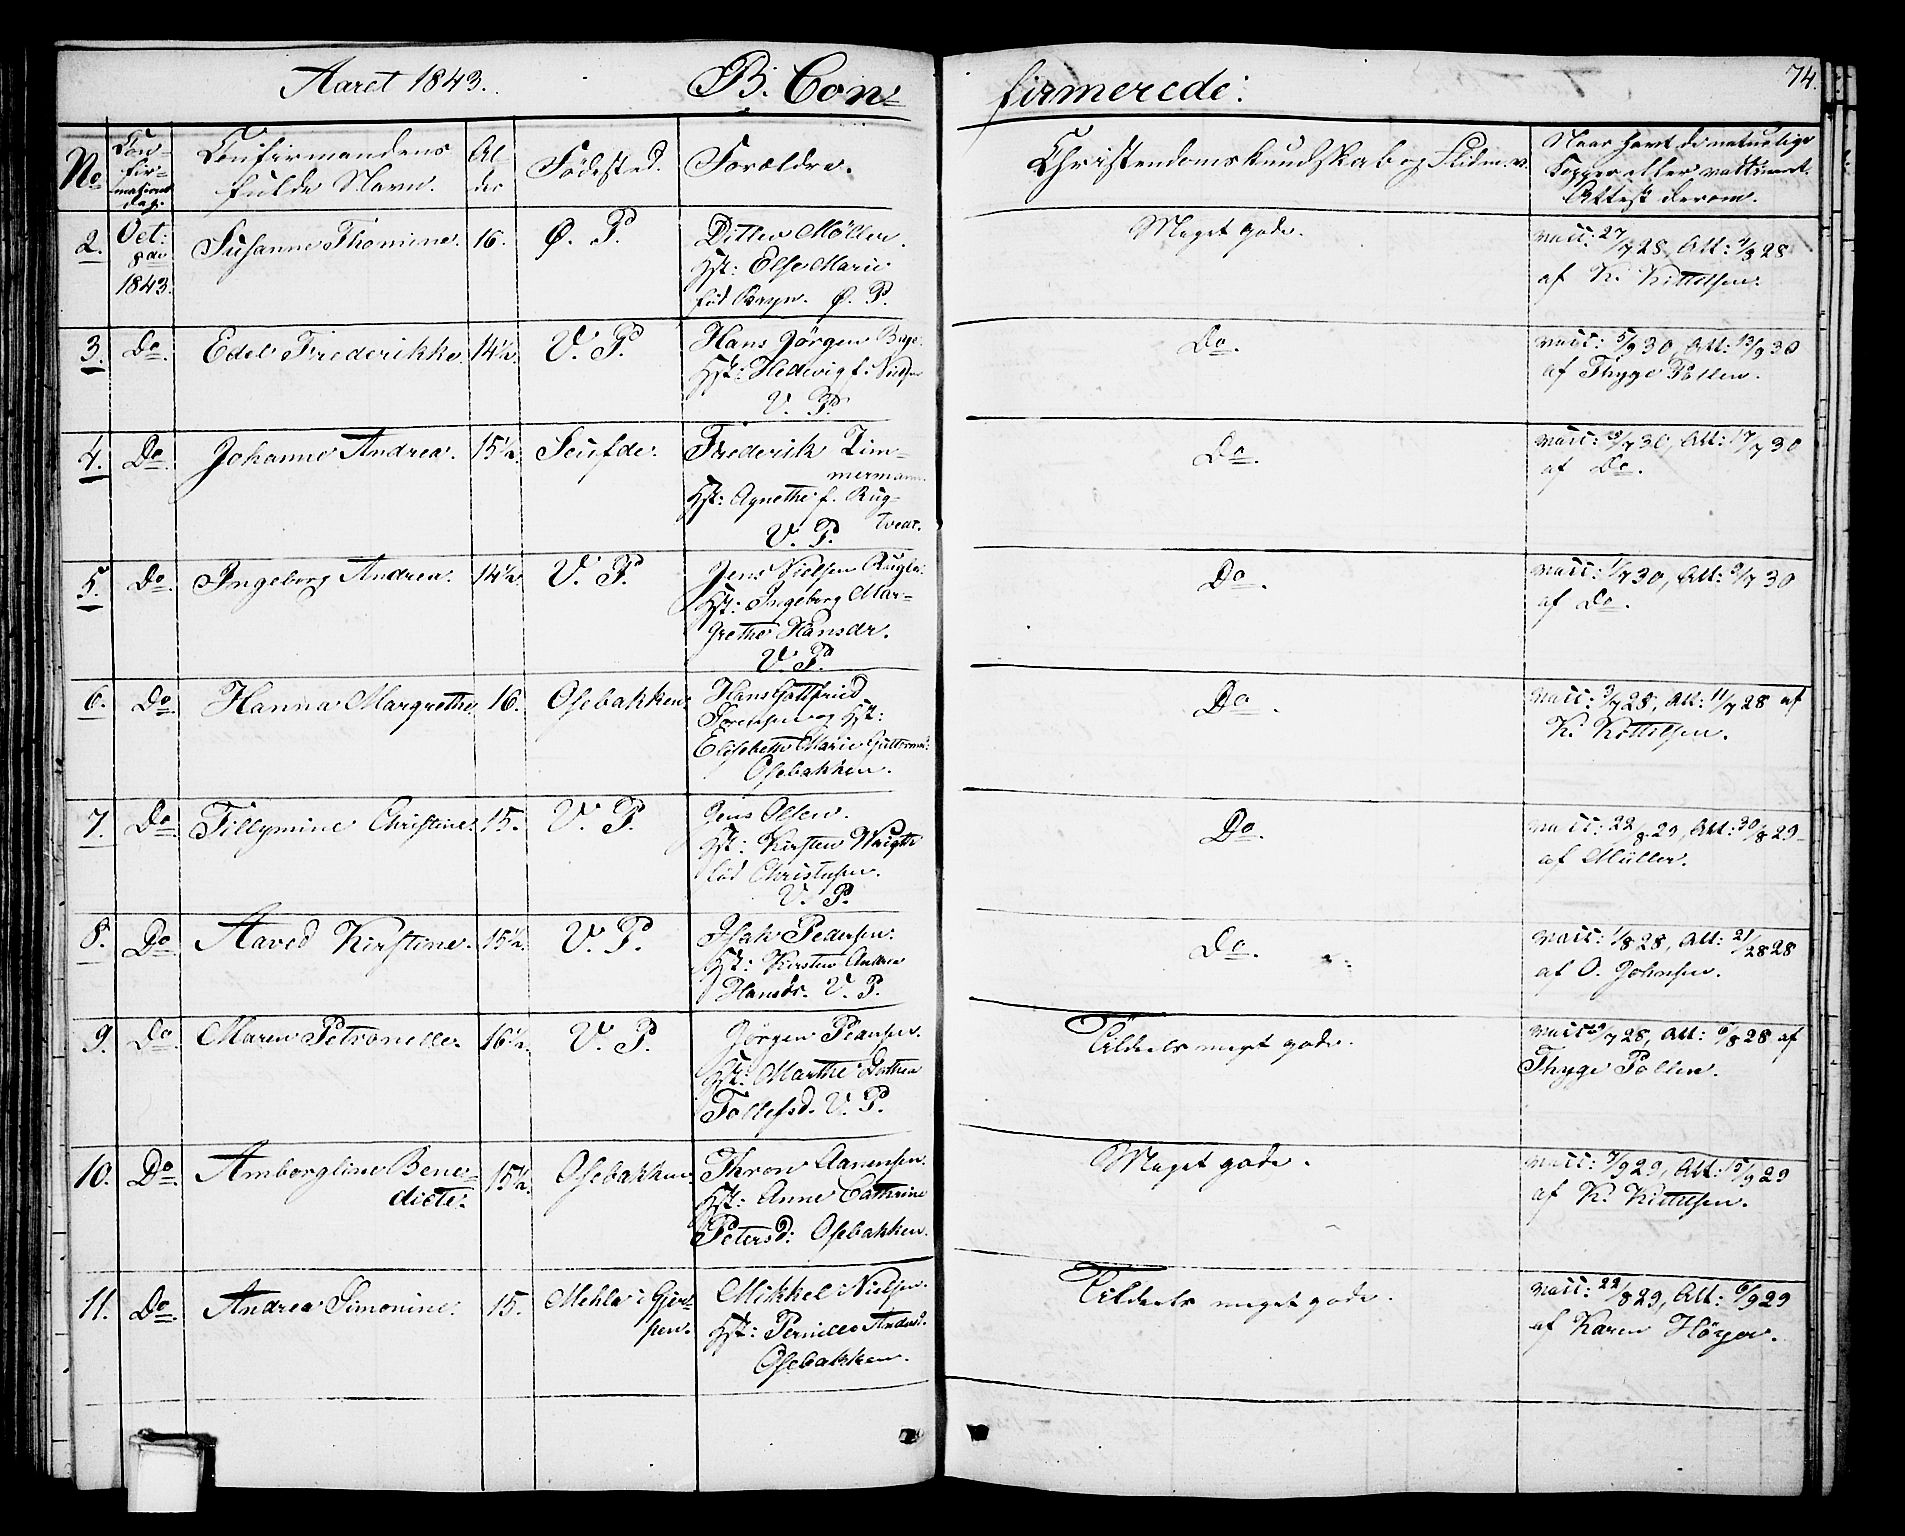 Aaret 1843.
B. Con=
firmerede:
74.
No
Con=
fir=
mations
dag.
Confirmandens
fulde Navn.
Al=
der
Fødested.
Forældre.
Christendomskundskab og Flid m. v.
Naar havt de naturlige
Kopper eller vattineret.
Attest derom.
2.
Oct:
8de
1843.
Susanne Thomine.
16.
Ø. P.
Ditlev Møller.
Hst: Else Marie
fød Bryn. Ø. P.
Meget gode.
vacc: 27/7 28, Att: 4/8 28
af K. Kittilsen.
3.
Do.
Edel Frederikke.
14½.
V. P.
Hans Jørgen
Hst: Hedevig f. Nielsen
V. P.
Do.
vacc: 5/9 30, Att: 13/9 30
af Thyge Pollen.
4.
Do.
Johanne Andrea.
15½.
Frederik Zim=
mermann.
Hst: Agnethe f. Rug=
tvedt.
V. P.
Do.
vacc: /7 30, Att: 17/7 30
af Do.
5.
Do.
Ingeborg Andrea.
14½.
V. P.
Jens Nielsen
Hst: Ingeborg Mar=
grethe Hansdr.
V. P.
Do.
vacc: 1/7 30, Att: 9/7 30
af Do.
6.
Do.
Hanna Margrethe.
16.
Osebakken.
Hans Gottfried
Sørensen og Hst:
Elisabeth Marie
Osebakken.
Do.
vacc: 3/7 28, Att: 11/7 28 af
K. Kittilsen.
7.
Do.
Tillymine Christine.
15.
V. P.
Jens Olsen.
Hst: Kirsten
fød Christensen.
V. P.
Do.
vacc: 22/8 29, Att: 30/8 29
af Müller.
8.
Do.
Aaved Kirstine.
15½.
V. P.
Isak Pedersen.
Hst: Kirsten Andrea
Hansdr. V. P.
Do.
vacc: 1/8 28, Att: 21/28 28
af O. Johnsen.
9.
Do.
Maren Petronelle.
16½.
V. P.
Jørgen Pedersen.
Hst: Marthe Dorthea
Tollefsd. V. P.
Tildeels meget gode.
vacc: /7 28, Att: 6/8 28 af
Thyge Pollen.
10.
Do.
Amborgline Bene=
dicte.
15½.
Osebakken.
Thron Aanensen.
Hst: Anne Cathrine
Petersd: Osebakken.
Meget gode.
vacc: 7/9 29, Att: 15/9 29
af K. Kittilsen.
11.
Do.
Andrea Simonine.
15.
Mehla i Gjer=
pen.
Mikkel Nielsen.
Hst: Pernille Andersd.
Osebakken.
Tildeels meget gode.
vacc: 22/8 29, Att: 6/9 29
af Karen Höyer.